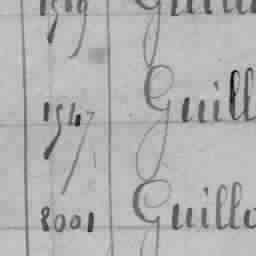 1519 Guill
1547 Guill
8001 Guillo